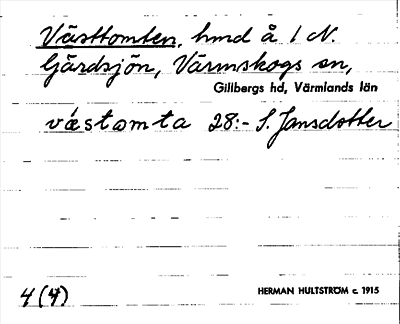 Västtomten, hmd å 1 N.
Gärdsjön, Värmskogs sn,
Gillbergs hd, Värmlands län
vǽstɑmta 28:- S. Jansdotter
4 (4)
HERMAN HULTSTRÖM c. 1915